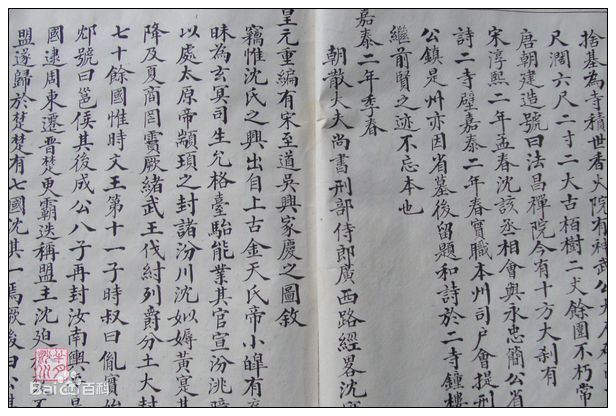 捨基為寺積世看火院有
尺濶六尺二寸二大古栢樹二丈餘圍不朽常
唐朝建造號曰法昌禪院今有十方大刹有
宋淳熙二年孟春沈該丞相會與永忠簡公省
詩二寺壁嘉泰二年春實職本州司戶會提刑
公鎮是州亦因省墓後留題和詩於二寺鐘樓
繼前賢之迹不忘本也
嘉泰二年季春
朝散大夫尚書刑部侍郎廣西路經畧沈
皇元重編有宋至道吳興家慶之圖敘
竊惟沈氏之興出自上古金天氏帝小皞有
昧為玄冥司生允格臺駘能業其官宣汾洮
以處太原帝顓頊之封諸汾川沈姒蓐黃寔其
降及夏商罔霣厥緒武王伐紂列爵分土大封
七十餘國惟時文王第十一子時叔曰
郕號曰邕侯其後成公八子再封汝南興
國逮周東遷晉楚更霸迭稱盟王沈迫
盟遂歸於楚楚有七國沈其一焉厥後曰
Bai百科